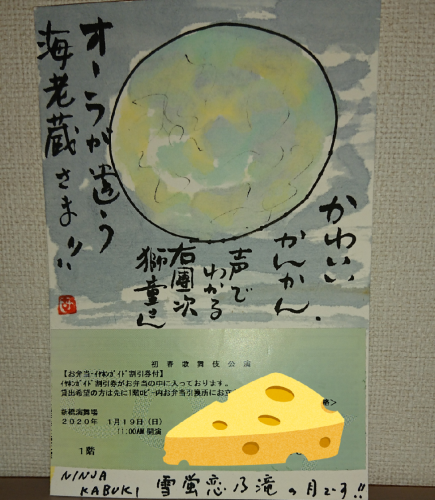 オーラが違う
海老蔵さま!!
かわいい
かんかん.
声で
わかる
右團次
獅童さん
初春歌舞伎公演
【お弁当・イヤホンガイド割引券付】
イヤホンガイド割引券がお弁当の中に入っております。
貸出希望の方は先に1階ロビー内お弁当引換所にお立
新橋演舞場
2020年 1月19日(日)
11:00AM開演
1階
NINJA
KABUKI 雪蛍恋乃滝の月です!!